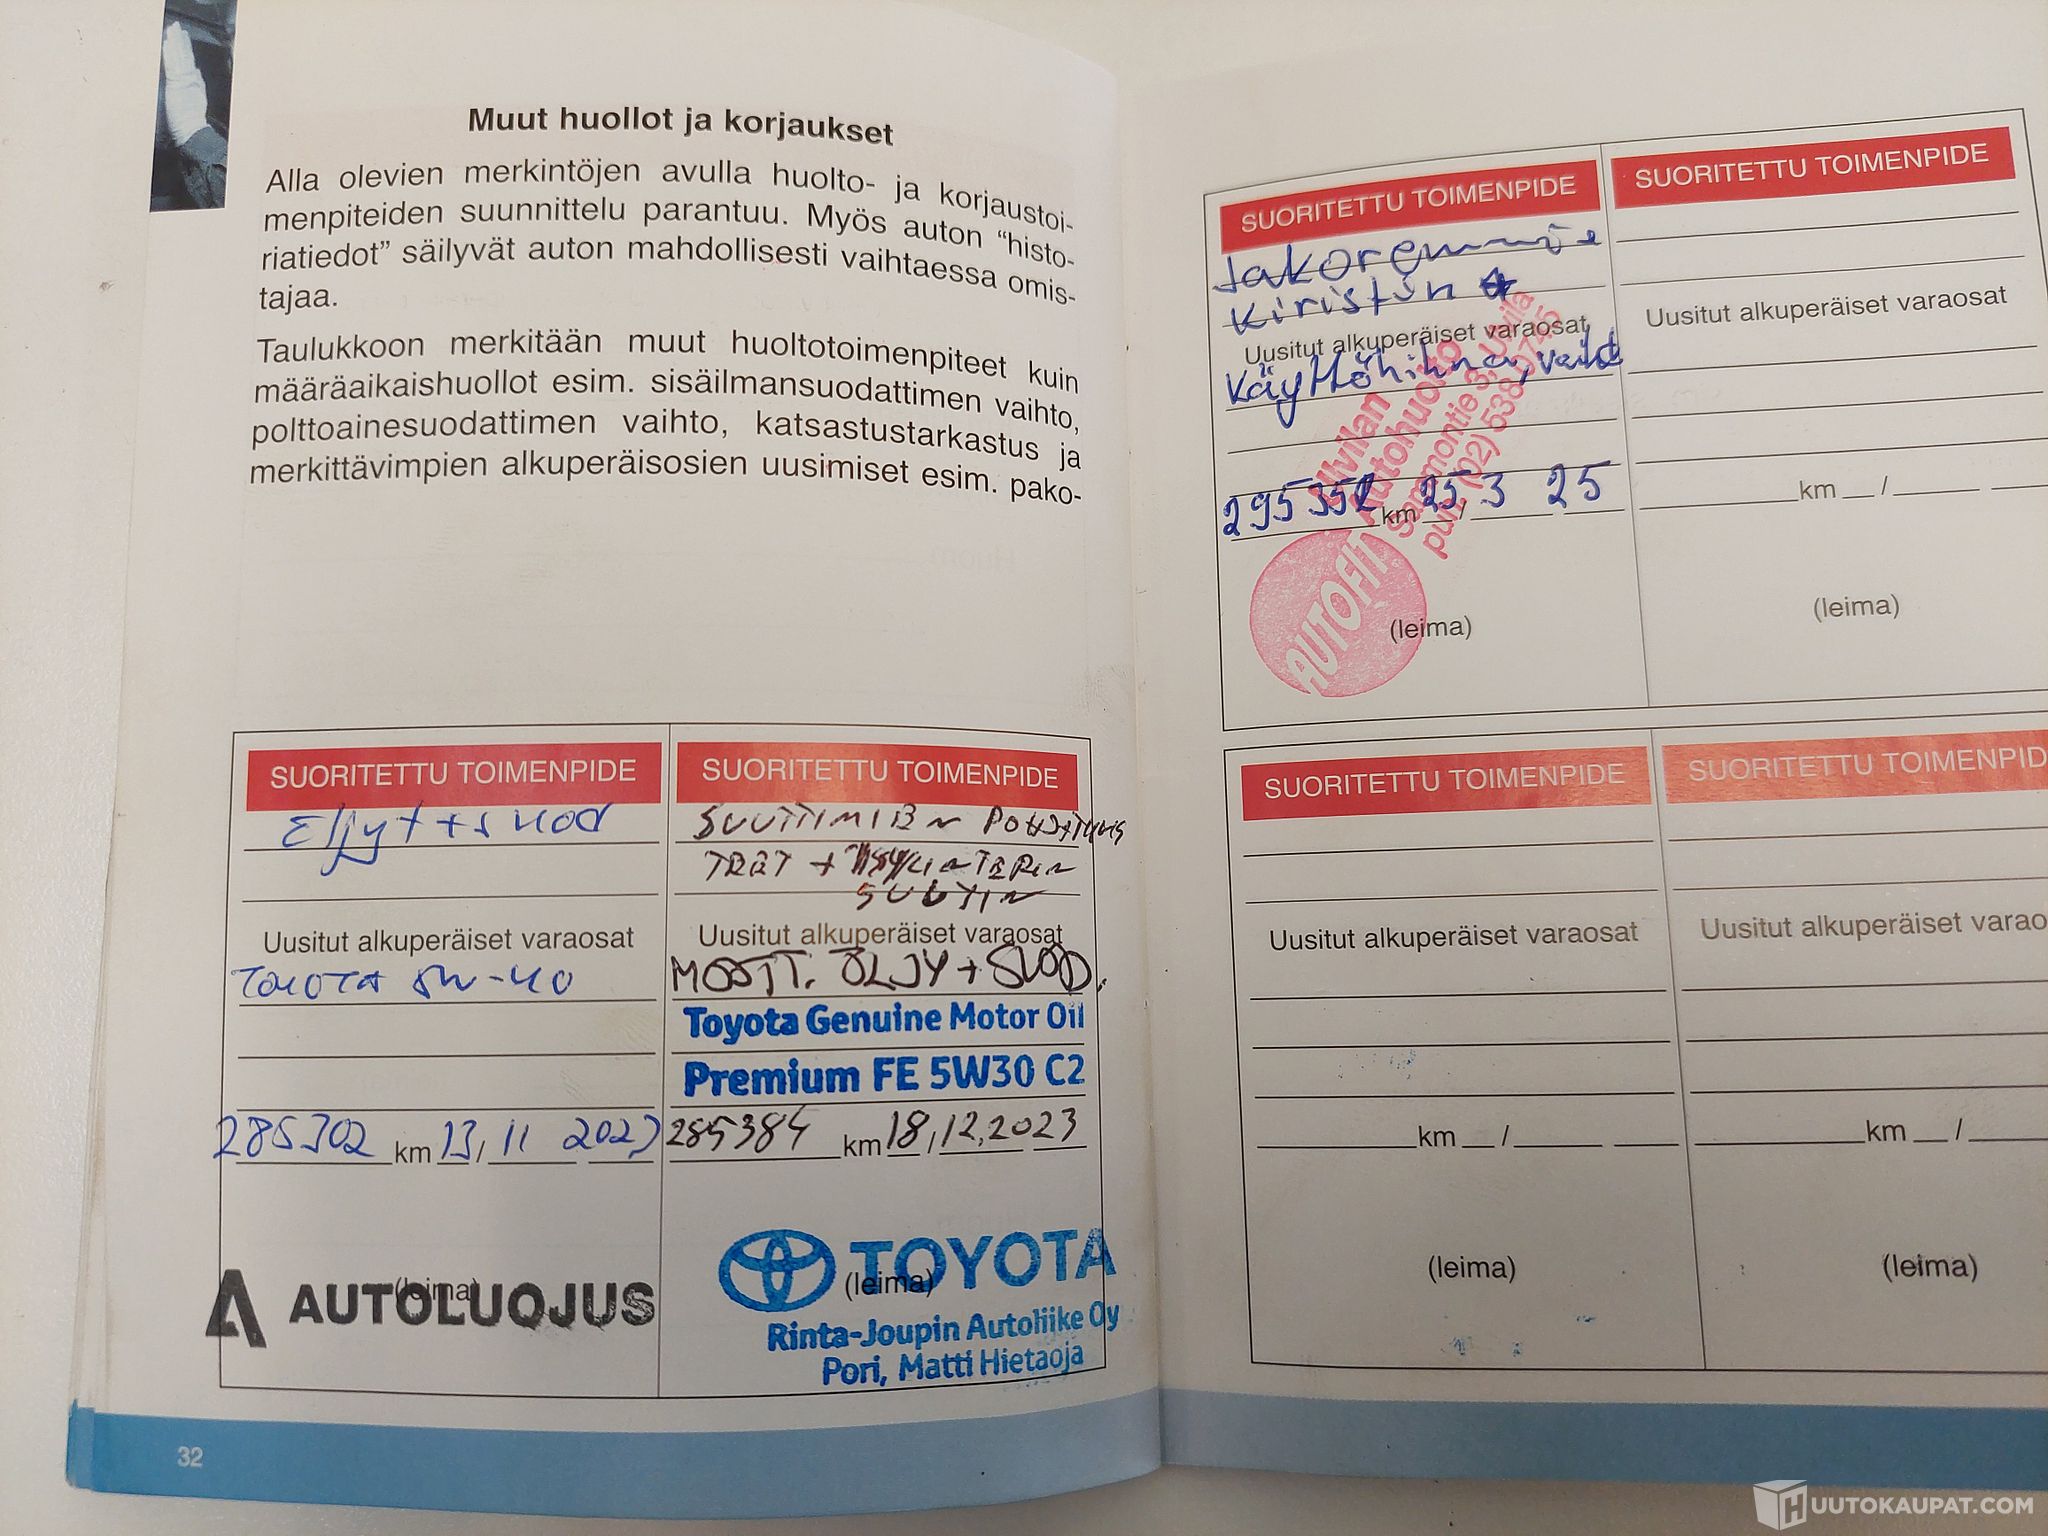 Muut huollot ja korjaukset
Alla olevien merkintöjen avulla huolto- ja korjaustoi-
menpiteiden suunnittelu parantuu. Myös auton “histo-
riatiedot” säilyvät auton mahdollisesti vaihtaessa omis-
tajaa.
Taulukkoon merkitään muut huoltotoimenpiteet kuin
määräaikaishuollot esim. sisäilmansuodattimen vaihto,
polttoainesuodattimen vaihto, katsastustarkastus ja
merkittävimpien alkuperäisosien uusimiset esim. pako-
SUORITETTU TOIMENPIDE
Uusitut alkuperäiset varaosat
TOYOTA 5W-40
285302 km 13/11 2023
(leima)
AUTOLUOJUS
SUORITETTU TOIMENPIDE
SUUTTIMIEN
Uusitut alkuperäiset varaosat
MOOTT. ÖLJY + SUOD.
Toyota Genuine Motor Oil
Premium FE 5W30 C2
285384 km 18,12,2023
(leima)
TOYOTA
Rinta-Joupin Autoliike Oy
Pori, Matti Hietaoja
32
SUORITETTU TOIMENPIDE
Kiristin
Uusitut alkuperäiset varaosat
Käyttöhihna, vaihd
295352 km 25/3 25
Ulvilan
Autohuolto
Sammontie 3, Ulvila
puh. (02) 538 0745
AUTOFIT
(leima)
SUORITETTU TOIMENPIDE
Uusitut alkuperäiset varaosat
km /
(leima)
SUORITETTU TOIMENPIDE
Uusitut alkuperäiset varaosat
km /
(leima)
SUORITETTU TOIMENPID
Uusitut alkuperäiset varao
km /
(leima)
HUUTOKAUPAT.COM